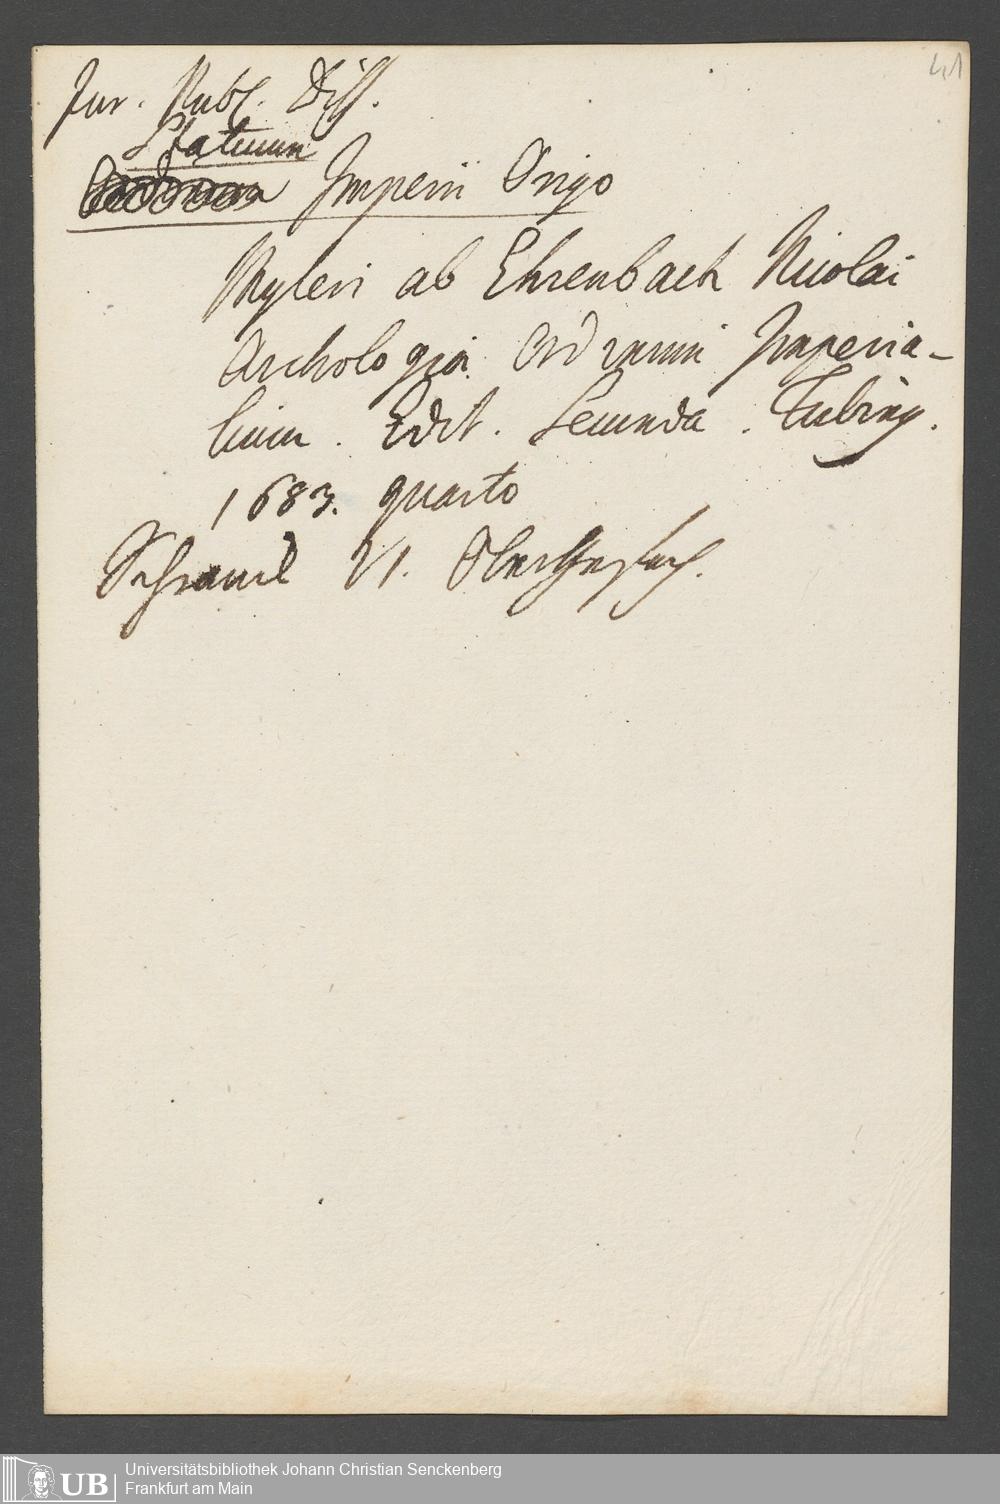 41
Jur. Publ. Diss.
Statuum
Imperii Origo
Myleri ab Ehrenbach Nicolai
Archologia Ordinum Imperia-
lium. Edit. Secunda. Tubing.
1683. quarto
Schranck VI. Oberstesfach.
Universitätsbibliothek Johann Christian Senckenberg
UB Frankfurt am Main